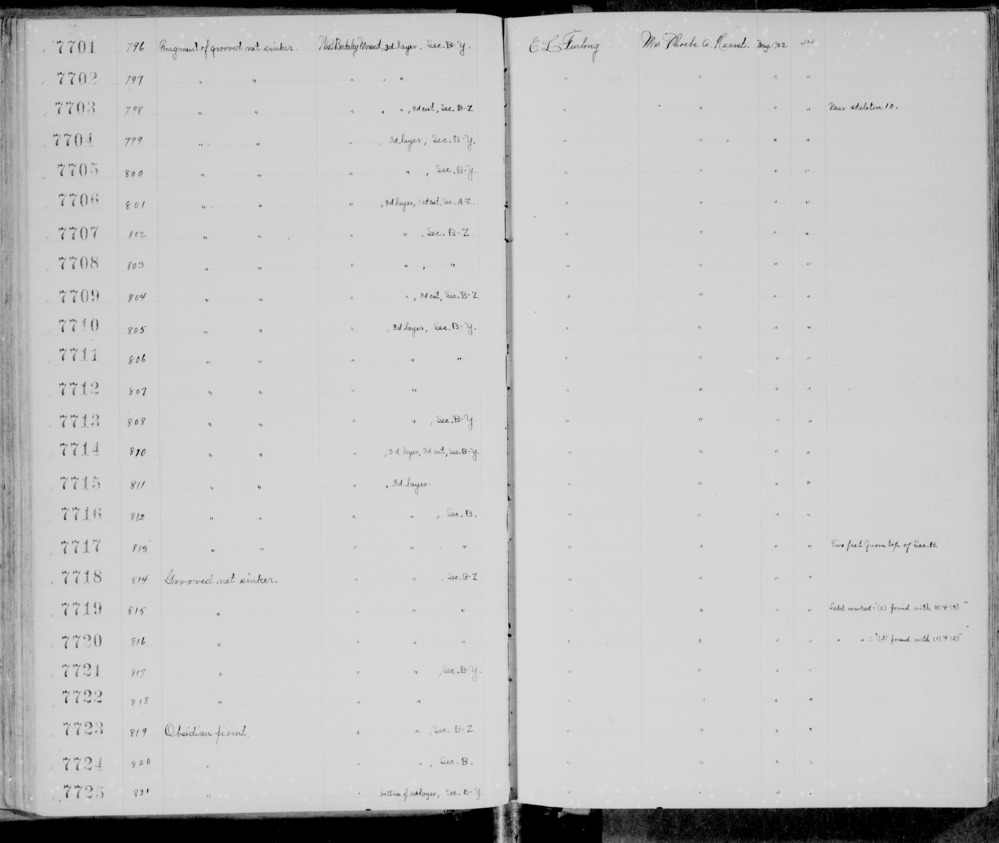 7701 796 Fragment of grooved net sinker. West Berkeley Mound, 3d layer, Sec. B-Y. E L Furlong Mrs Phoebe A. Hearst. May '02
7702 797 " " " " "
7703 798 " " " " ", 3d cut, Sec. B-Z " " " " Near skeleton 10.
7704 799 " " " 3d layer, Sec. B-Y. " " " "
7705 800 " " " ", Sec. B-Y. " " " "
7706 801 " " ", 3d layer, 1st cut, Sec. A-Z. " " " "
7707 802 " " " ", Sec. B-Z. " " " "
7708 803 " " " ", " " " " "
7709 804 " " " ", 3d cut, Sec. B-Z. " " " "
7710 805 " " ", 3d layer, Sec. B-Y. " " " "
7711 806 " " " " " " " " "
7712 807 " " " " " " " "
7713 808 " " " ", Sec. B-Y " " " "
7714 810 " " ", 3d layer, 3d cut, Sec. B-Y. " " " "
7715 811 " " ", 3d layer. " " " "
7716 812 " " " ", Sec. B. " " " "
7717 813 " " " " " " " " " Two feet from top of Sec. B.
7718 814 Grooved net sinker. " " Sec. B-Z " " " "
7719 815 " " " " " " " " Label marked: "(2) found with (1) & (3)"
7720 816 " " " " " " " " " " : "(3) found with (1) & (2)"
7721 817 " " ", Sec. B-Y. " " " "
7722 818 " " " " " " "
7723 819 Obsidian point. " ", Sec. B-Z " " " "
7724 820 " " ", Sec. B. " " " "
7725 821 " " bottom of 3d layer, Sec. B-Y " " " "